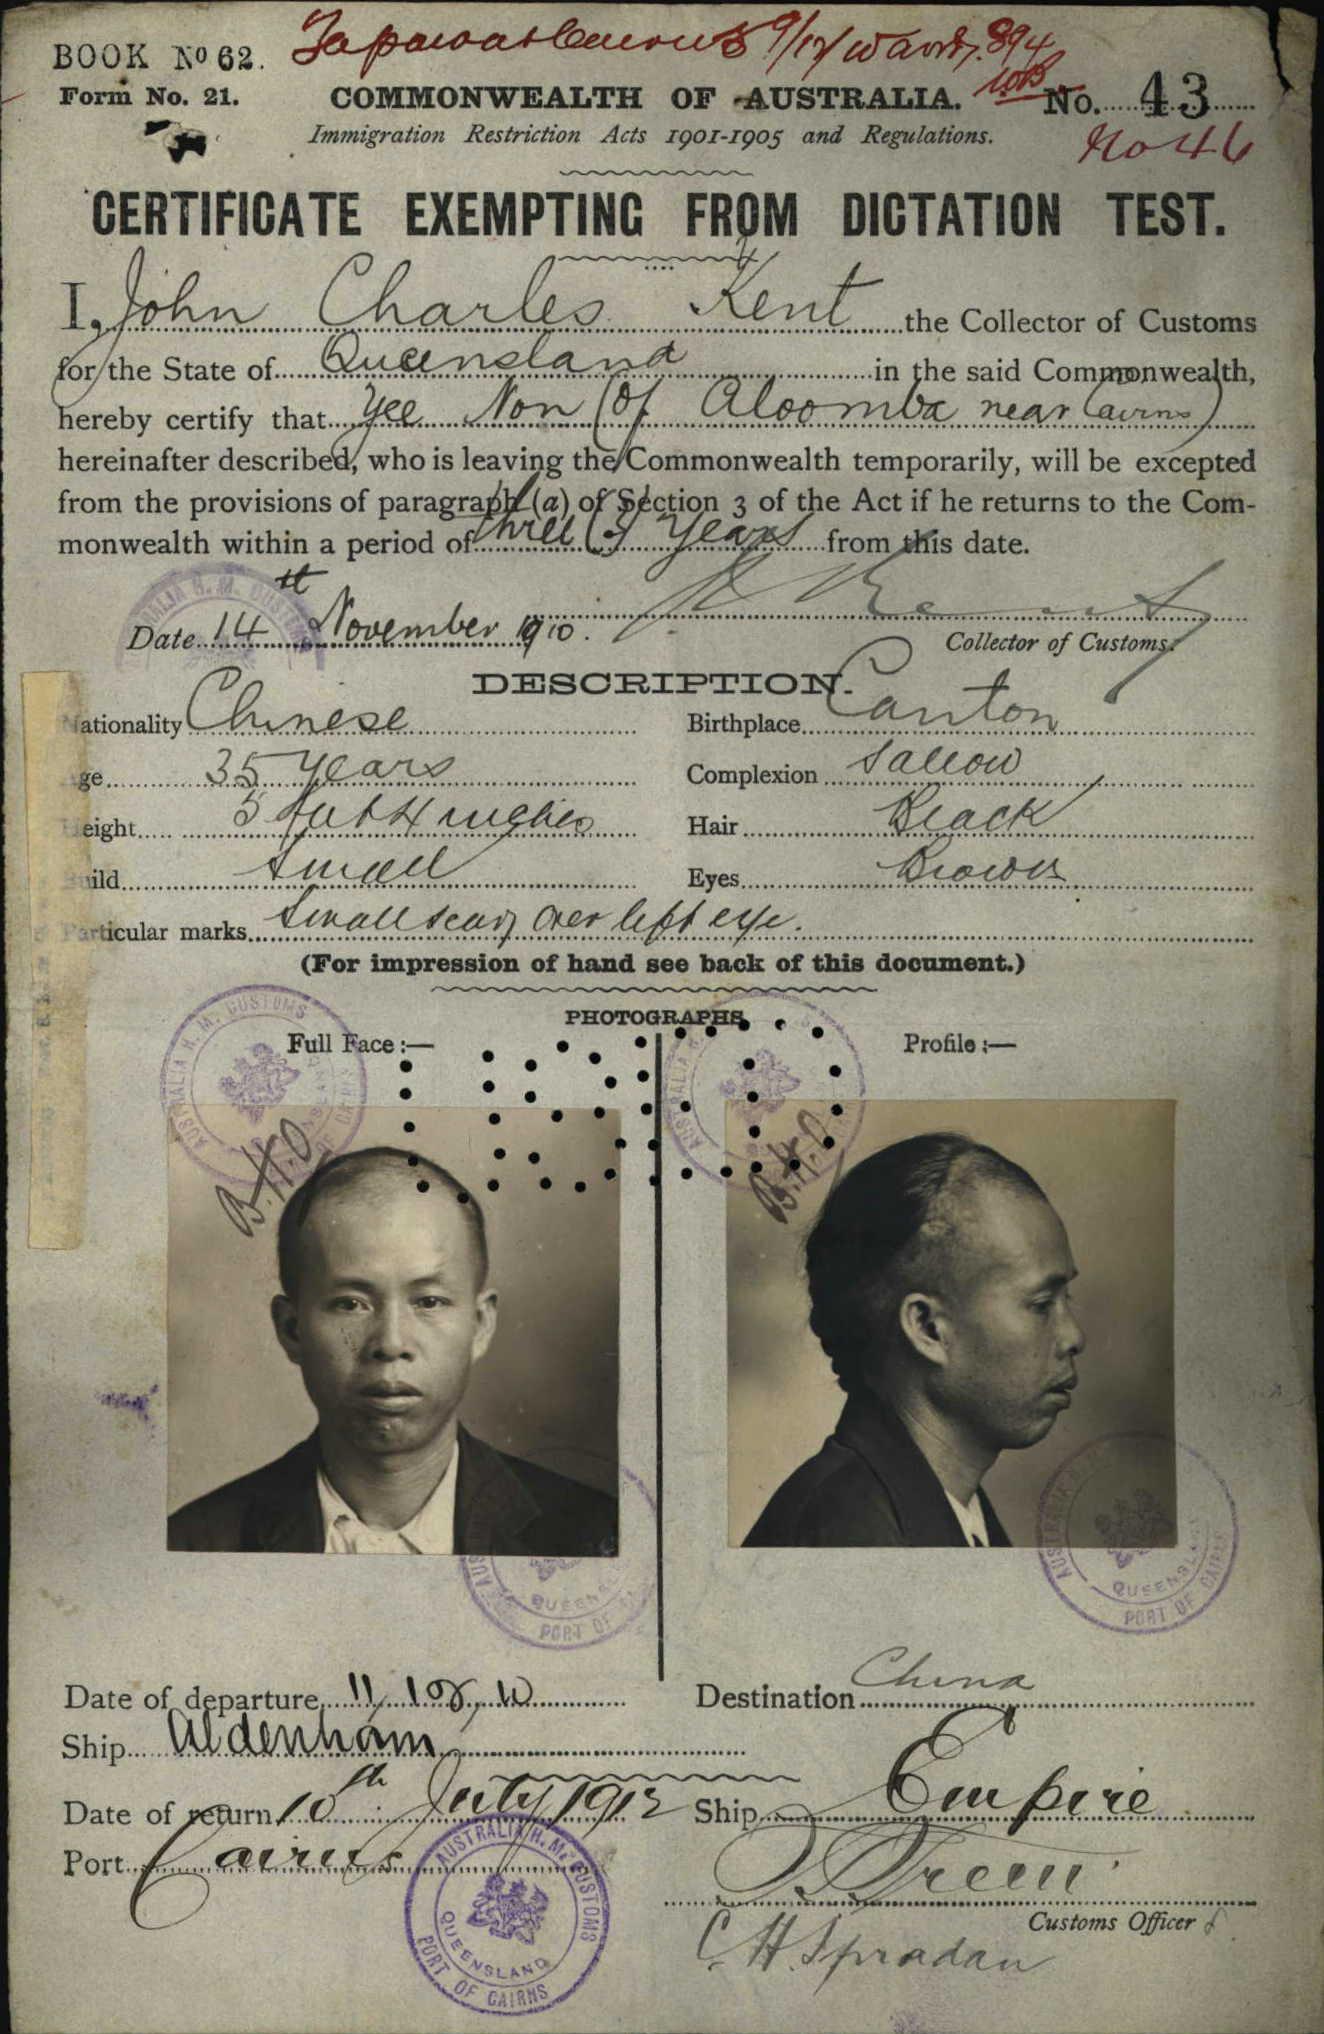 BOOK No 62.
Form No. 21.
COMMONWEALTH OF AUSTRALIA.
No. 43
Immigration Restriction Acts 1901-1905 and Regulations.
No 46
CERTIFICATE EXEMPTING FROM DICTATION TEST.
I, John Charles Kent the Collector of Customs
for the State of Queensland in the said Commonwealth,
hereby certify that Yee Non (of Aloomba near Cairns)
hereinafter described, who is leaving the Commonwealth temporarily, will be excepted
from the provisions of paragraph (a) of Section 3 of the Act if he returns to the Com-
monwealth within a period of three (3) Years from this date.
Date 14th November 1910.
Collector of Customs.
DESCRIPTION.
Nationality Chinese Birthplace Canton
Age 35 Years Complexion Sallow
Height 5 feet 4 inches Hair Black
Build Small Eyes Brown
Particular marks Small scar over left eye.
(For impression of hand see back of this document.)
PHOTOGRAPHS.
Full Face:— Profile:—
B.H.O B.H.O
AUSTRALIA H.M. CUSTOMS
QUEENSLAND
PORT OF CAIRNS
Date of departure 11/12/10 Destination China
Ship Aldenham
Date of return 10th July 1912 Ship Empire
Port Cairns
Customs Officer
C H Spradan
AUSTRALIA H.M. CUSTOMS
QUEENSLAND
PORT OF CAIRNS